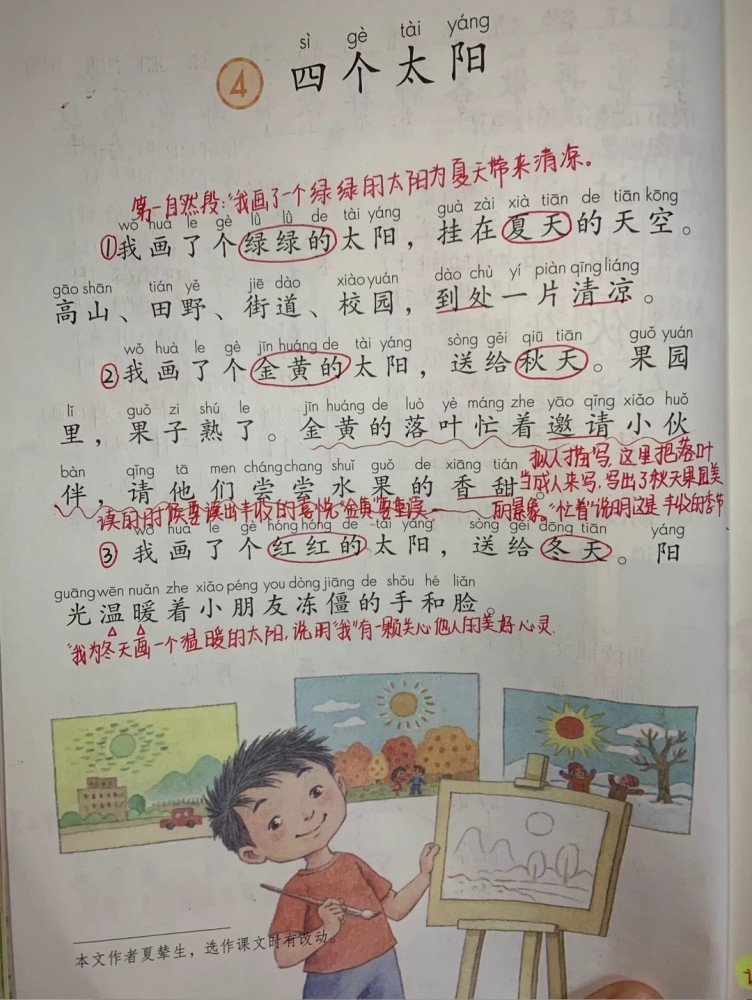 sì gè tài yáng
4 四个太阳
第一自然段:"我画了一个绿绿的太阳为夏天带来清凉。
wǒ huà le gè lǜ lǜ de tài yáng guà zài xià tiān de tiān kōng
①我画了个绿绿的太阳，挂在夏天的天空。
gāo shān tián yě jiē dào xiào yuán dào chù yí piàn qīng liáng
高山、田野、街道、校园，到处一片清凉。
wǒ huà le gè jīn huáng de tài yáng sòng gěi qiū tiān guǒ yuán
②我画了个金黄的太阳，送给秋天。果园
lǐ guǒ zi shú le jīn huáng de luò yè máng zhe yāo qǐng xiǎo huǒ
里，果子熟了。金黄的落叶忙着邀请小伙
bàn qǐng tā men cháng chang shuǐ guǒ de xiāng tián
伴，请他们尝尝水果的香甜。
拟人描写,这里把落叶
当成人来写,写出了秋天果园美
丽的景象。"忙着"说明这是丰收的季节
读的时候要读出丰收的喜悦"金黄"要重读
wǒ huà le gè hóng hóng de tài yáng sòng gěi dōng tiān yáng
③我画了个红红的太阳，送给冬天。阳
guāng wēn nuǎn zhe xiǎo péng you dòng jiāng de shǒu hé liǎn
光温暖着小朋友冻僵的手和脸。
"我为冬天画一个温暖的太阳,说明"我"有一颗关心他人的美好心灵.
本文作者夏辇生，选作课文时有改动。